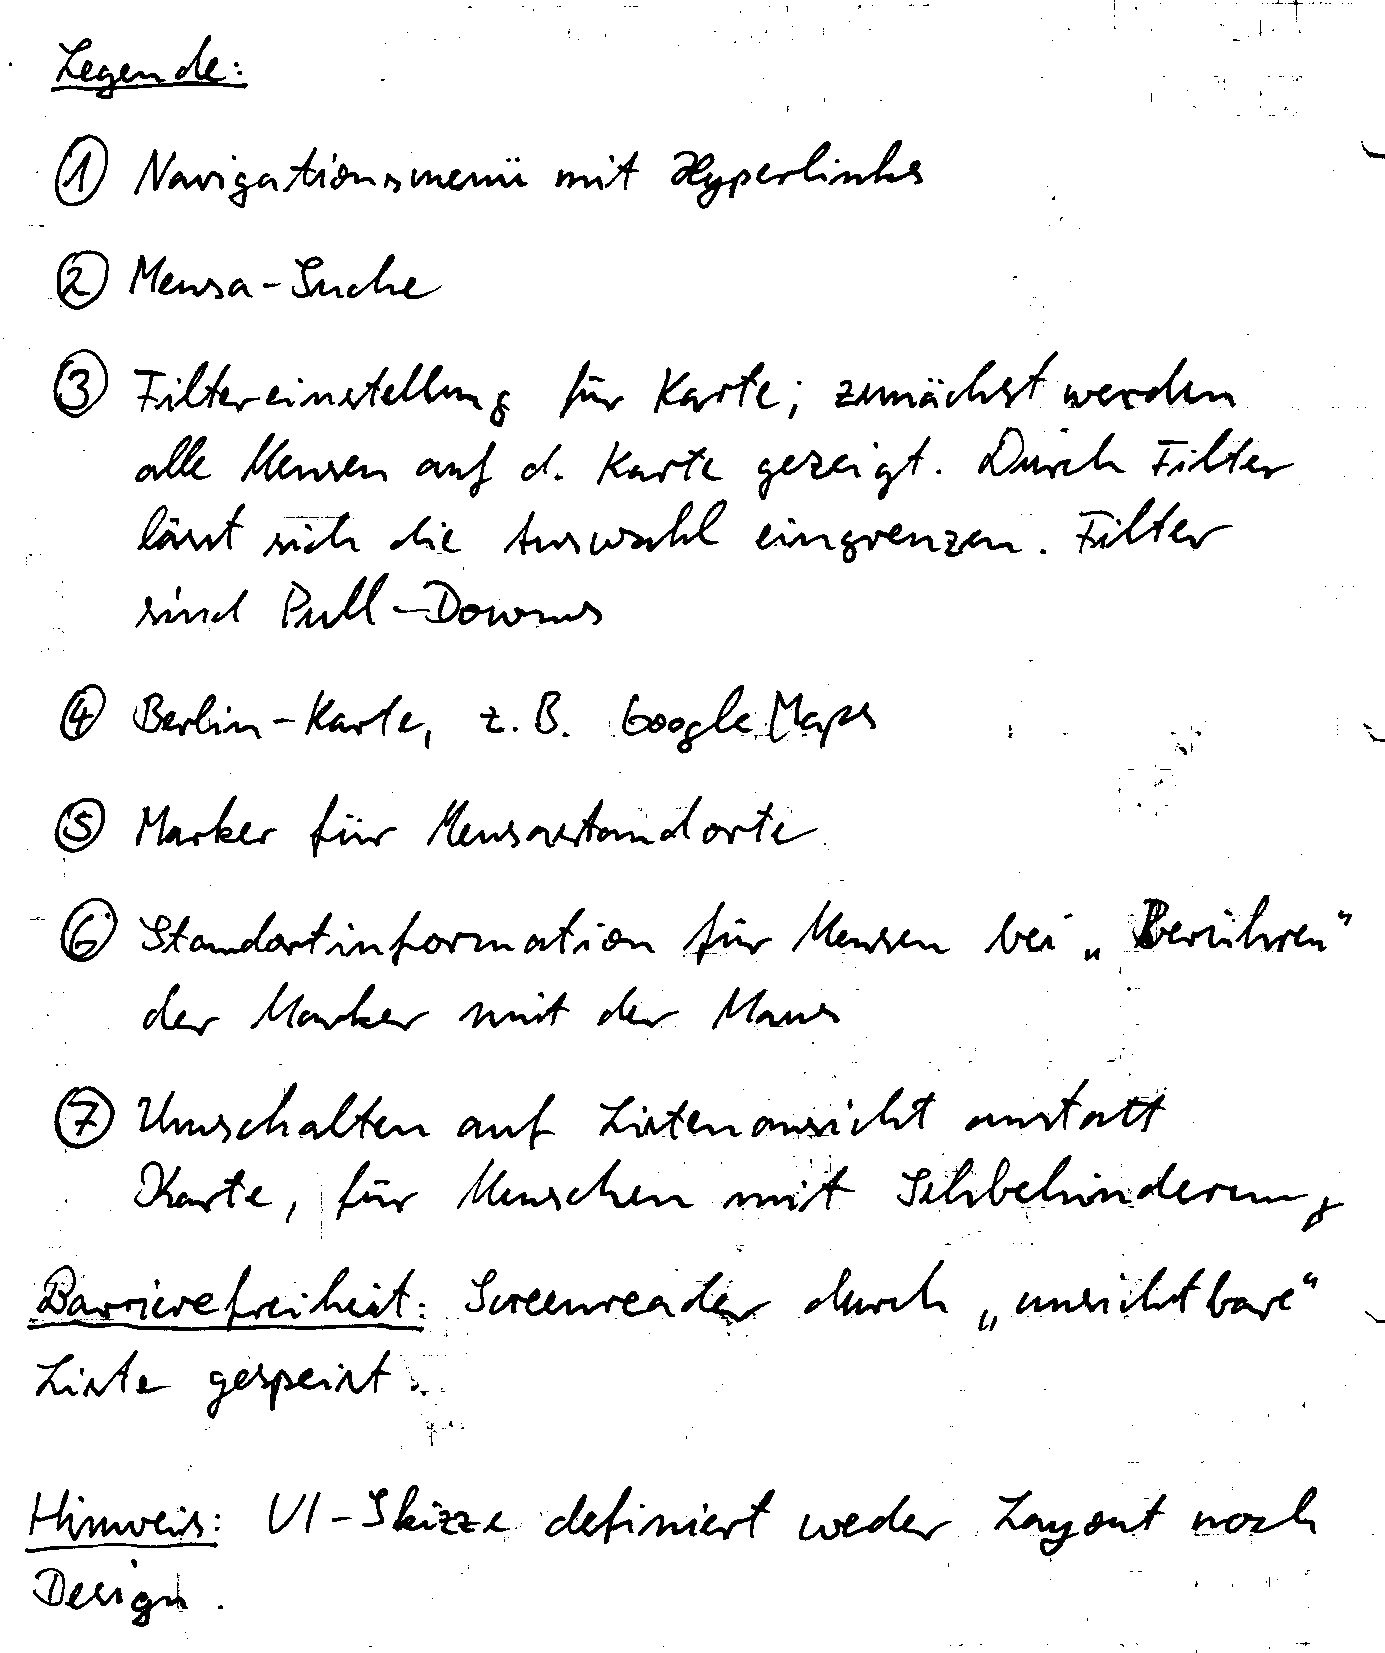 Legende:
① Navigationsmenü mit Hyperlinks
② Mensa-Suche
③ Filtereinstellung für Karte; zunächst werden
alle Mensen auf d. Karte gezeigt. Durch Filter
lässt sich die Auswahl eingrenzen. Filter
sind Pull-Downs
④ Berlin-Karte, z.B. Google Maps
⑤ Marker für Mensastandorte
⑥ Standortinformation für Mensen bei „Berühren“
der Marker mit der Maus
⑦ Umschalten auf Listenansicht anstatt
Karte, für Menschen mit Sehbehinderung
Barrierefreiheit: Screenreader durch „unsichtbare“
Liste gespeist.
Hinweis: UI-Skizze definiert weder Layout noch
Design.